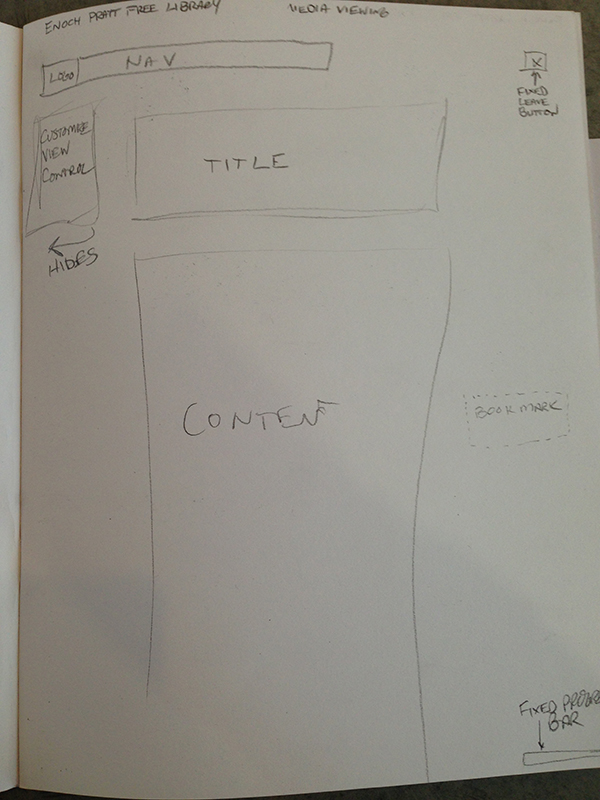 ENOCH PRATT FREE LIBRARY
MEDIA VIEWING
LOGO
NAV
X
FIXED
LEAVE
BUTTON
CUSTOMIZE
VIEW
CONTROL
TITLE
HIDES
CONTENT
BOOKMARK
FIXED PROGRE
BAR